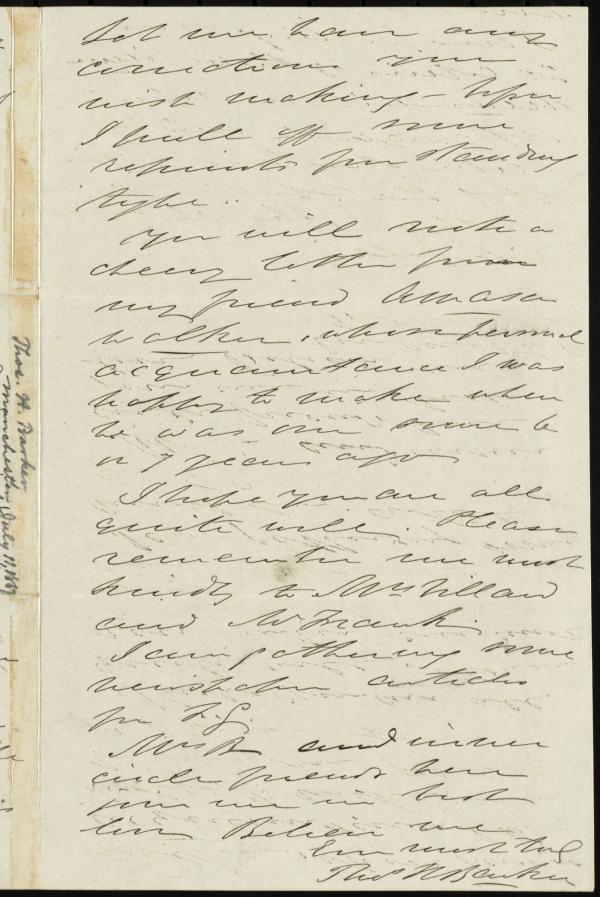 Let me have any
corrections you
wish making – before
I pull off more
reprints from standing
type.
You will note a
cheery letter from
my friend Amasa
Walker, whose personal
acquaintance I was
happy to make when
he was over some 6
or 7 years ago
I hope you are all
quite well. Please
remember me most
kindly to Mrs Villard
and Mr Frank.
I am gathering some
newspaper articles
for F.J.
Mrs B and inner
circle friends here
join me in best
love Believe me
Ever most truly
Thos H Barker
Thos. H. Barker
Manchester, July 11, 1867